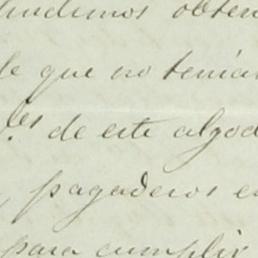 pudimos obten
de que no tenian
les de este algod
, pagaderos e
para cumplir